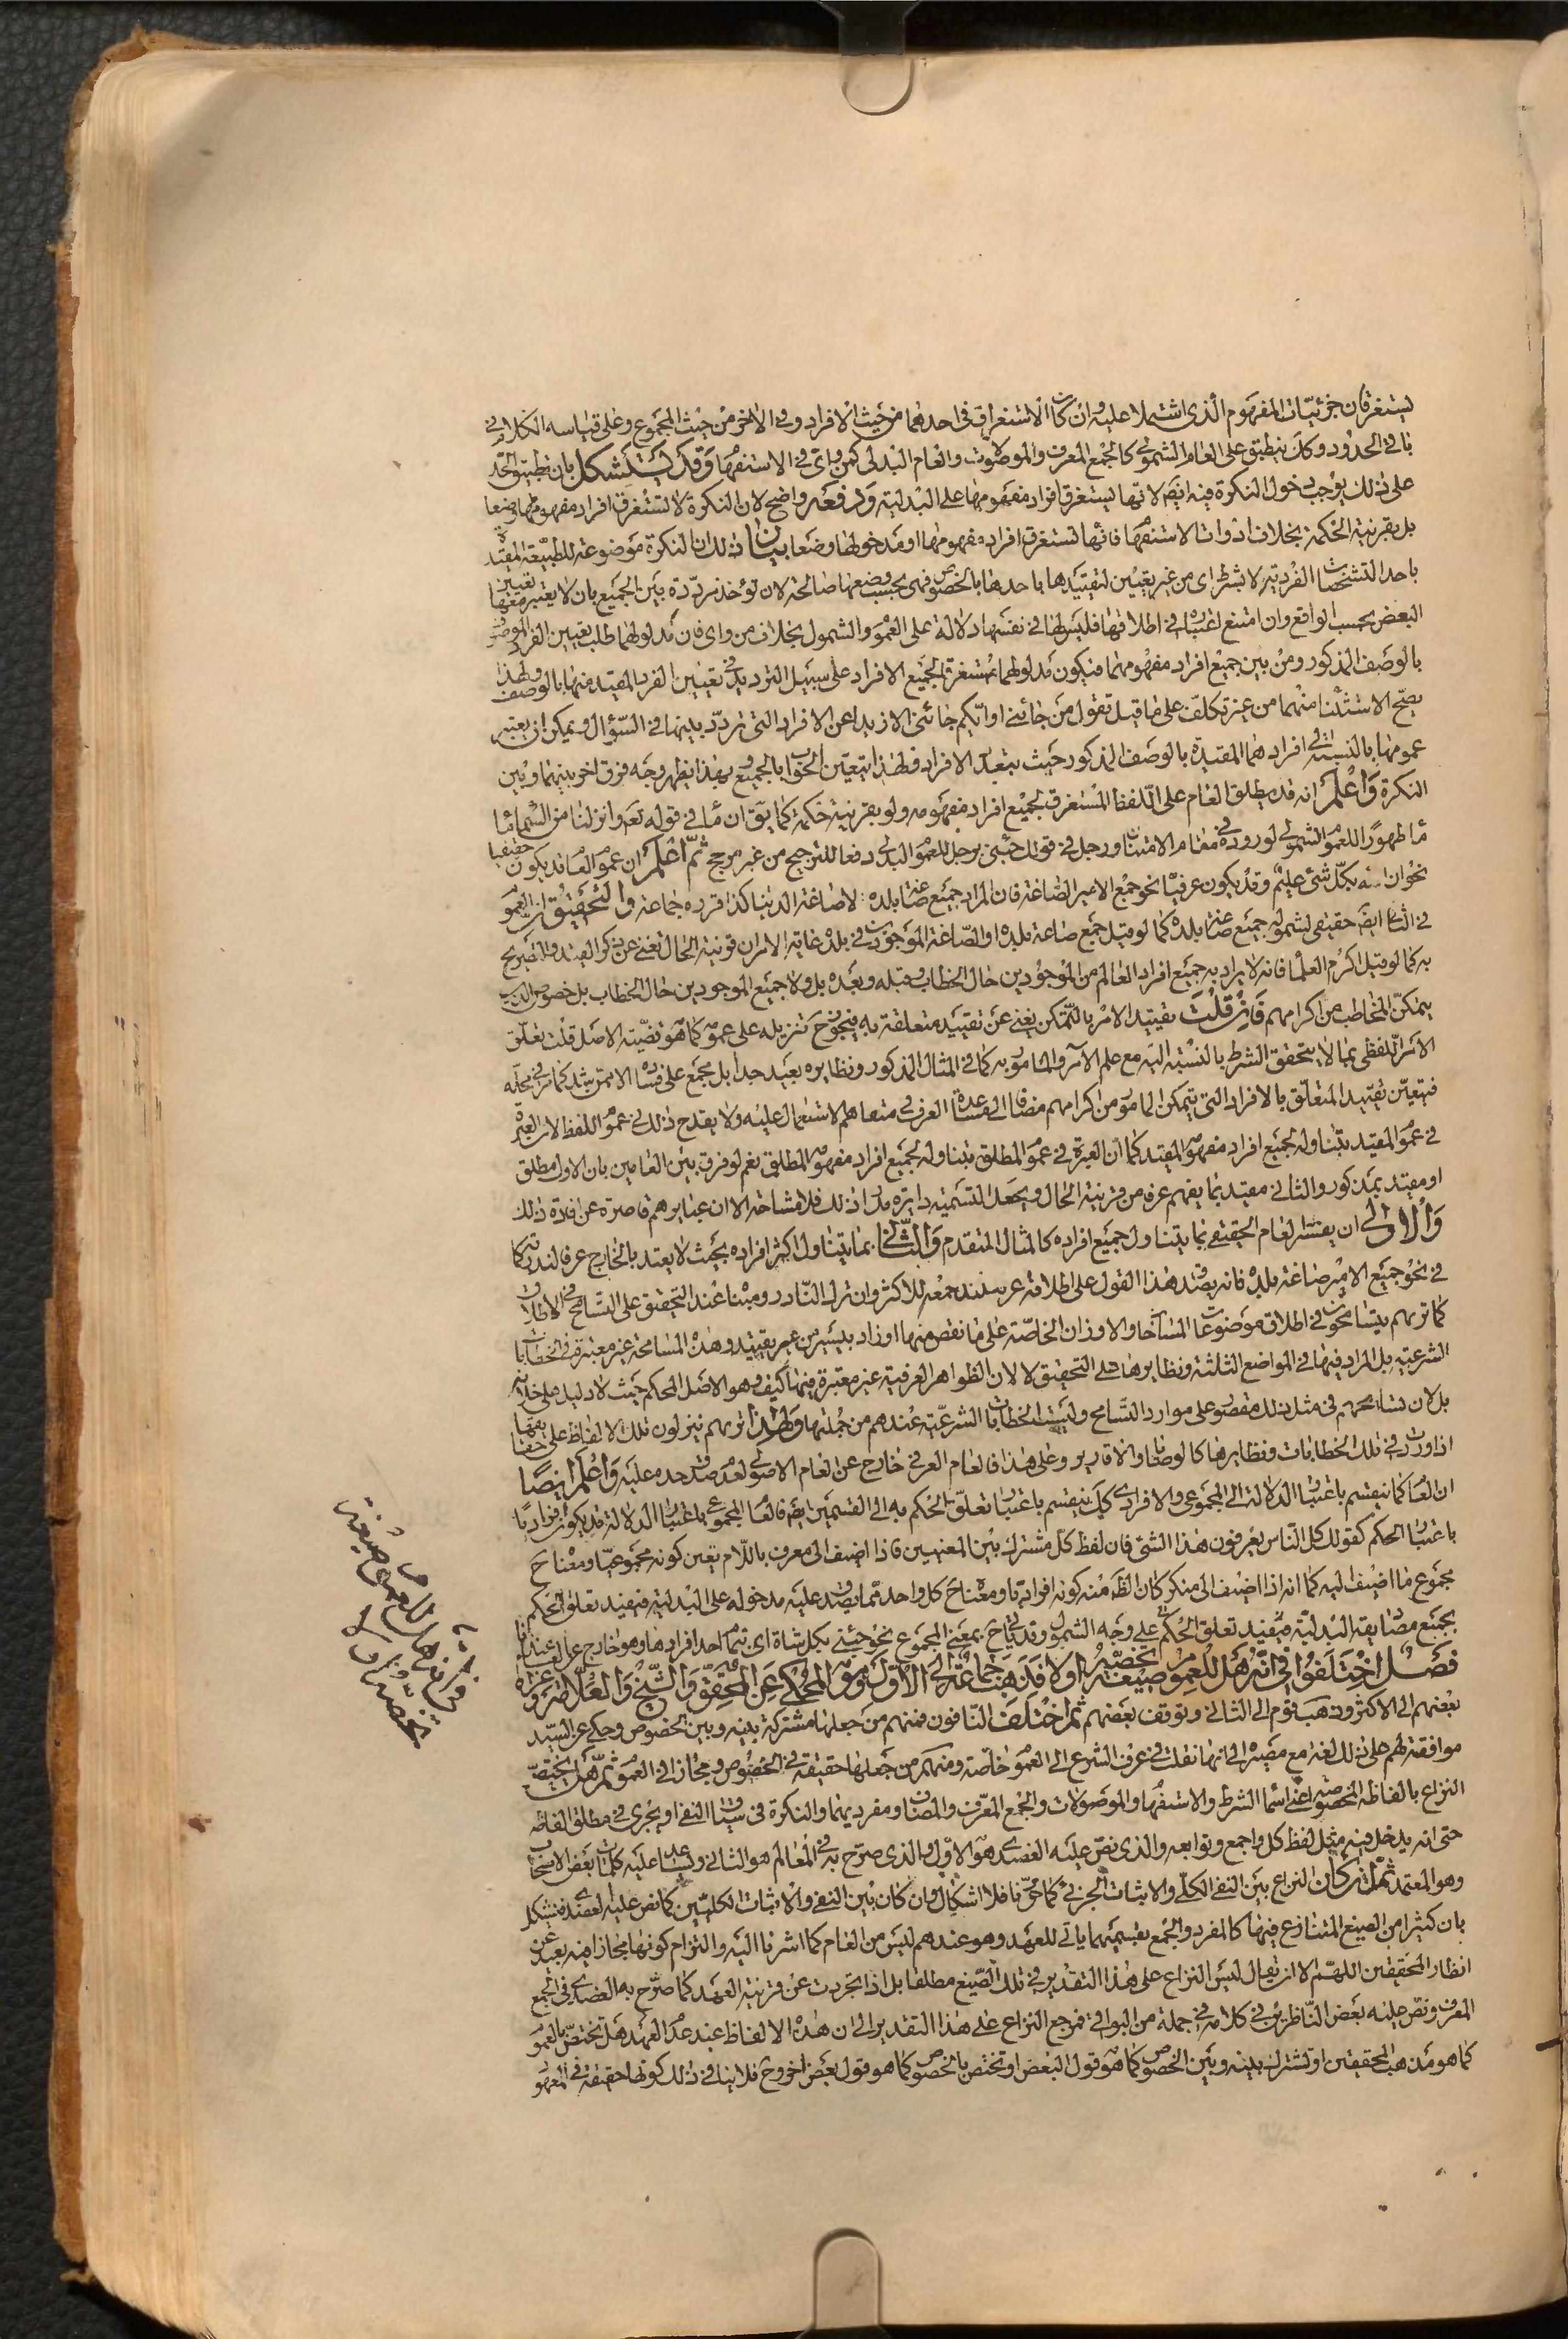 يستغرقان جزئيات المفهوم الذى اشتملا عليه وان كان الاستغراق فى احدهما من حيث الافراد وفى الاخر من حيث المجموع وعلى قياسه الكلام فى
باقى الحدود وكك ينطبق على العام الشمولى كالجمع المعرف والموصولات والعام البدلى كمن واى فى الاستفهام وقد يستشكل بان تطبيق الحد
على ذلك يوجب دخول النكرة فيه ايضا لانها يستغرق افراد مفهومها على البدلية ودفعه واضح لان النكرة لا تستغرق افراد مفهومها وضعا
بل بقرينة الحكمة بخلاف ادوات الاستفهام فانها تستغرق افراد مفهومها او مدخولها وضعا بيان ذلك ان النكرة موضوعة للطبيعة المقيدة
باحد التشخصات الفردية لا بشرط اى من غير تعيين لتقييدها باحدها بالخصوص فهى بحسب وضعها صالحة لان تؤخذ مرددة بين الجميع بان لا يعتبر معها تعيين
البعض بحسب الواقع وان امتنع اعتباره فى اطلاقها فليس لها فى نفسها دلالة على العموم والشمول بخلاف من واى فان مدلولهما طلب تعيين الفرد الموصوف
بالوصف المذكور ومن بين جميع افراد مفهومهما فيكون مدلولهما مستغرقا لجميع الافراد على سبيل الترديد فى تعيين الفرد المقيد منها بالوصف ولهذا
يصح الاستثناء منهما من غير تكلف على ما قيل تقول من جائنى او ايكم جائنى الا زيدا عن الافراد التى تردد بينها فى السؤال ويمكن ان يعتبر
عمومها بالنسبة الى افرادهما المقيدة بالوصف المذكور حيث يتعدد الافراد فلهذا يتعين الجواب بالجميع وبهذا يظهر وجه فرق اخر بينهما وبين
النكرة واعلم انه قد يطلق العام على اللفظ المستغرق لجميع افراد مفهومه ولو بقرينة حكمة كما يق ان ماء فى قوله تعه وانزلنا من السماء ماء
ماء طهورا للعموم الشمولى لوروده فى مقام الامتنان ورجل فى قولك جئنى برجل للعموم البدلى دفعا للترجيح من غير مرجح ثم اعلم ان عموم العام قد يكون حقيقيا
نحو ان الله بكل شئ عليم وقد يكون عرفيا نحو جمع الامير الصاغة فان المراد جميع صاغة بلده لا صاغة الدنيا كذا قرره جماعة والتحقيق ان العموم
فى الثانى ايضا حقيقى لشموله جميع صاغة بلده كما لو قيل جمع صاغة بلده او الصاغة الموجودين فى بلده غاية الامر ان قرينة الحال تغنى عن ذكر القيد والتصريح
به كما لو قيل اكرم العلماء فانه لا يراد به جميع افراد العالم من الموجودين حال الخطاب وقبله وبعده بل ولا جميع الموجودين حال الخطاب بل خصوص الذين
يتمكن المخاطب من اكرامهم فان قلت تقييد الامر بالتمكن يغنى عن تقييد متعلقة به فيجوز ح تنزيله على عمومه كما هو قضية الاصل قلت تعلق
الامر اللفظى بما لا يتحقق الشرط بالنسبة اليه مع علم الامر والمامور به كما فى المثال المذكور ونظايره بعيد جدا بل مجمع على فساده الا ممن شذ كما مر فى محله
فيتعين تقييد المتعلق بالافراد التى يتمكن المامور من اكرامهم مضافا الى مساعدة العرف فى متفاهم الاستعمال عليه ولا يقدح ذلك فى عموم اللفظ لان العبرة
فى عموم المقيد بتناوله لجميع افراد مفهومه المقيد كما ان العبرة فى عموم المطلق بتناوله لجميع افراد مفهومه المطلق نعم لو فرق بين العامين بان الاول مطلق
او مقيد بمذكور والثانى مقيد بما يفهم عرفا من قرينة الحال ويجعل التسمية دايرة مدار ذلك فلا مشاحة الا ان عبايرهم قاصرة عن افادة ذلك
والاولى ان يفسر العام الحقيقى بما يتناول جميع افراده كالمثال المتقدم والثانى بما يتناول اكثر افراده بحيث لا يعتد بالخارج عرفا لندرته كما
فى نحو جمع الامير صاغة بلده فانه يصدق هذا القول على اطلاقه عرفا عند جمعه للاكثر وان ترك النادر ومبناه عند التحقيق على التسامح فى الاطلاق
كما تراهم يتسامحون فى اطلاق موضوعات المساحة والاوزان الخاصة على ما نقص منها او زاد بيسير من غير تقييد وهذه المسامحة غير معتبرة فى الخطابات
الشرعية بل المراد فيها فى المواضع الثلثة ونظايرها على التحقيق لا لان الظواهر العرفية غير معتبرة فيها كيف وهو الاصل المحكم حيث لا دليل على خلافه
بل لان تسامحهم فى مثل ذلك مقصور على موارد التسامح وليست الخطابات الشرعية عندهم من جملتها ولهذا تراهم ينزلون تلك الالفاظ على حقايقها
اذا وردت فى تلك الخطابات ونظايرها كالوصايا والاقارير وعلى هذا فالعام العرفى خارج عن العام الاصولى لعدم صدق حده عليه واعلم ايضا
ان العام كما ينقسم باعتبار الدلالة الى المجموعى والافرادى كك ينقسم باعتبار تعلق الحكم به الى القسمين ايضا فالعام المجموعى باعتبار الدلالة قد يكون افراديا
باعتبار الحكم كقولك كل الناس يعرفون هذا الشئ فان لفظ كل مشترك بين المعنيين فاذا اضيف الى معرف باللام تعين كونه مجموعيا ومعناه ح
مجموع ما اضيف اليه كما انه اذا اضيف الى منكر كان الظ منه كونه افراديا ومعناه ح كل واحد مما يصدق عليه مدخوله على البدلية فيفيد تعلق الحكم
بجميع مصاديقه البدلية فيفيد تعلق الحكم على وجه الشمول وقد ياتى ح بمعنى المجموع نحو جئنى بكل شاة اى بتمام احد افرادها وهو خارج عن العام عندنا
فصل اختلفوا فى انه هل للعموم صيغة تخصه او لا فذهب جماعة الى الاول وهو المحكى عن المحقق والشيخ والعلامة وعزاه
بعضهم الى الاكثر وذهب قوم الى الثانى وتوقف بعضهم ثم اختلف النافون فمنهم من جعلها مشتركة بينه وبين الخصوص وحكى عن السيد
موافقته لهم على ذلك لغة مع مصيره الى انها نقلت فى عرف الشرع الى العموم خاصة ومنهم من جعلها حقيقة فى الخصوص ومجازا فى العموم ثم هل يختص
النزاع بالفاظه المخصوصة اعنى اسماء الشرط والاستفهام والموصولات والجمع المعرف والمضاف ومفرديهما والنكرة فى سياق النفى او يجرى فى مطلق الفاظه
حتى انه يدخل فيه مثل لفظ كل واجمع وتوابعه والذى نص عليه العضدى هو الاول والذى صرح به فى المعالم هو الثانى ويساعد عليه كلمات بعض الاصحاب
وهو المعتمد ثم ان كان النزاع بين النفى الكلى والاثبات الجزئى كما حررنا فلا اشكال وان كان بين النفى والاثبات الكليين كما نص عليه العضدى فيشكل
بان كثيرا من الصيغ المتنازع فيها كالمفرد والجمع بقسميهما ياتى للعهد وهو عندهم ليس من العام كما اشرنا اليه والتزام كونها مجازا فيه بعيد عن
انظار المحققين اللهم الا ان يقال ليس النزاع على هذا التقدير فى تلك الصيغ مطلقا بل اذا تجردت عن قرينة العهد كما صرح به العضدى فى الجمع
المعرف ونص عليه بعض الناظرين فى كلامه فى جملة من البواقى فمرجع النزاع على هذا التقدير الى ان هذه الالفاظ عند عدم العهد هل تختص بالعموم
كما هو مذهب المحققين او تشترك بينه وبين الخصوص كما هو قول البعض او تختص بالخصوص كما هو قول بعض اخر وح فلا ينافى ذلك كونها حقيقة فى المعهود
فى انه هل للعموم صيغة
تخصه او لا